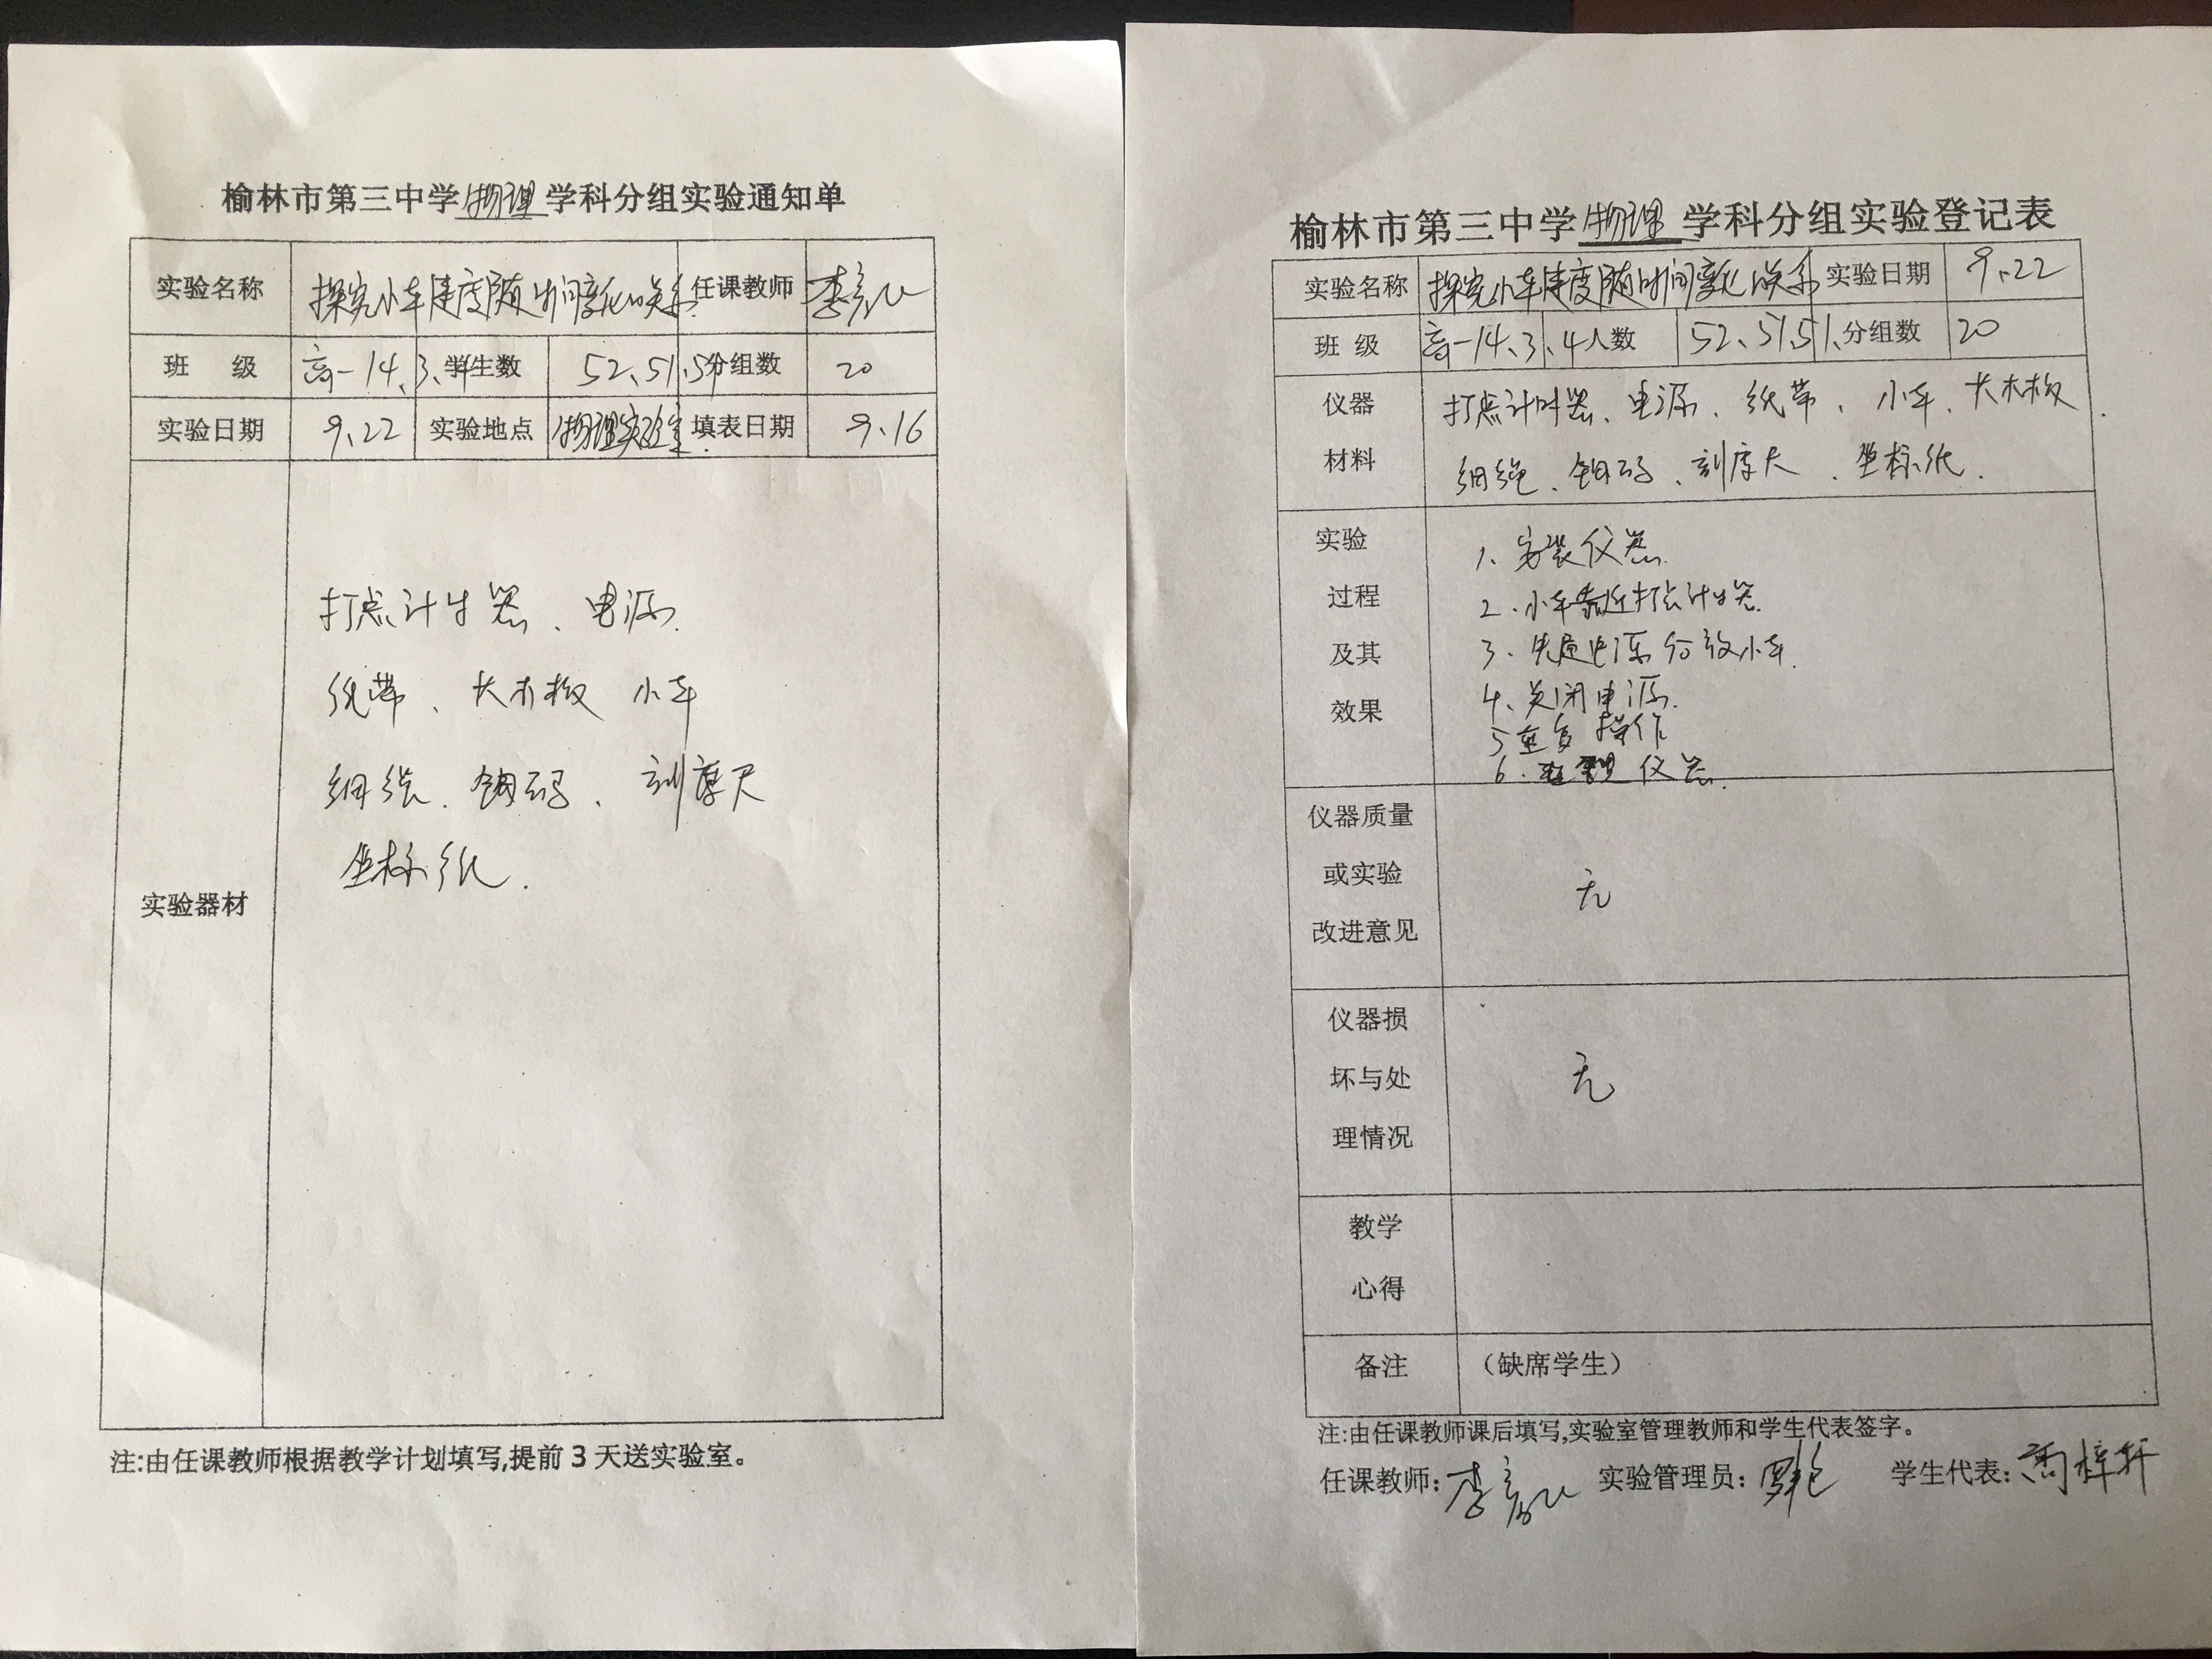 榆林市第三中学物理学科分组实验通知单
实验名称 探究小车速度随时间变化的关系 任课教师
班 级 高一14、3、4 学生数 52、51、51 分组数 20
实验日期 9.22 实验地点 物理实验室. 填表日期 9.16
实验器材
打点计时器、电源.
纸带、长木板 小车
细绳、钩码、刻度尺
坐标纸.
注:由任课教师根据教学计划填写,提前3天送实验室。
榆林市第三中学物理学科分组实验登记表
实验名称 探究小车速度随时间变化的关系 实验日期 9.22
班 级 高一14、3、4 人数 52、51、51、分组数 20
仪器 打点计时器、电源、纸带、小车、长木板.
材料 细绳、钩码、刻度尺、坐标纸.
实验 1、安装仪器.
过程 2.小车靠近打点计时器.
及其 3、先通电源后放小车.
效果 4、关闭电源.
5 重复操作
6.整理仪器.
仪器质量
或实验 无
改进意见
仪器损
坏与处 无
理情况
教学
心得
备注 （缺席学生）
注:由任课教师课后填写,实验室管理教师和学生代表签字。
任课教师: 实验管理员: 学生代表: